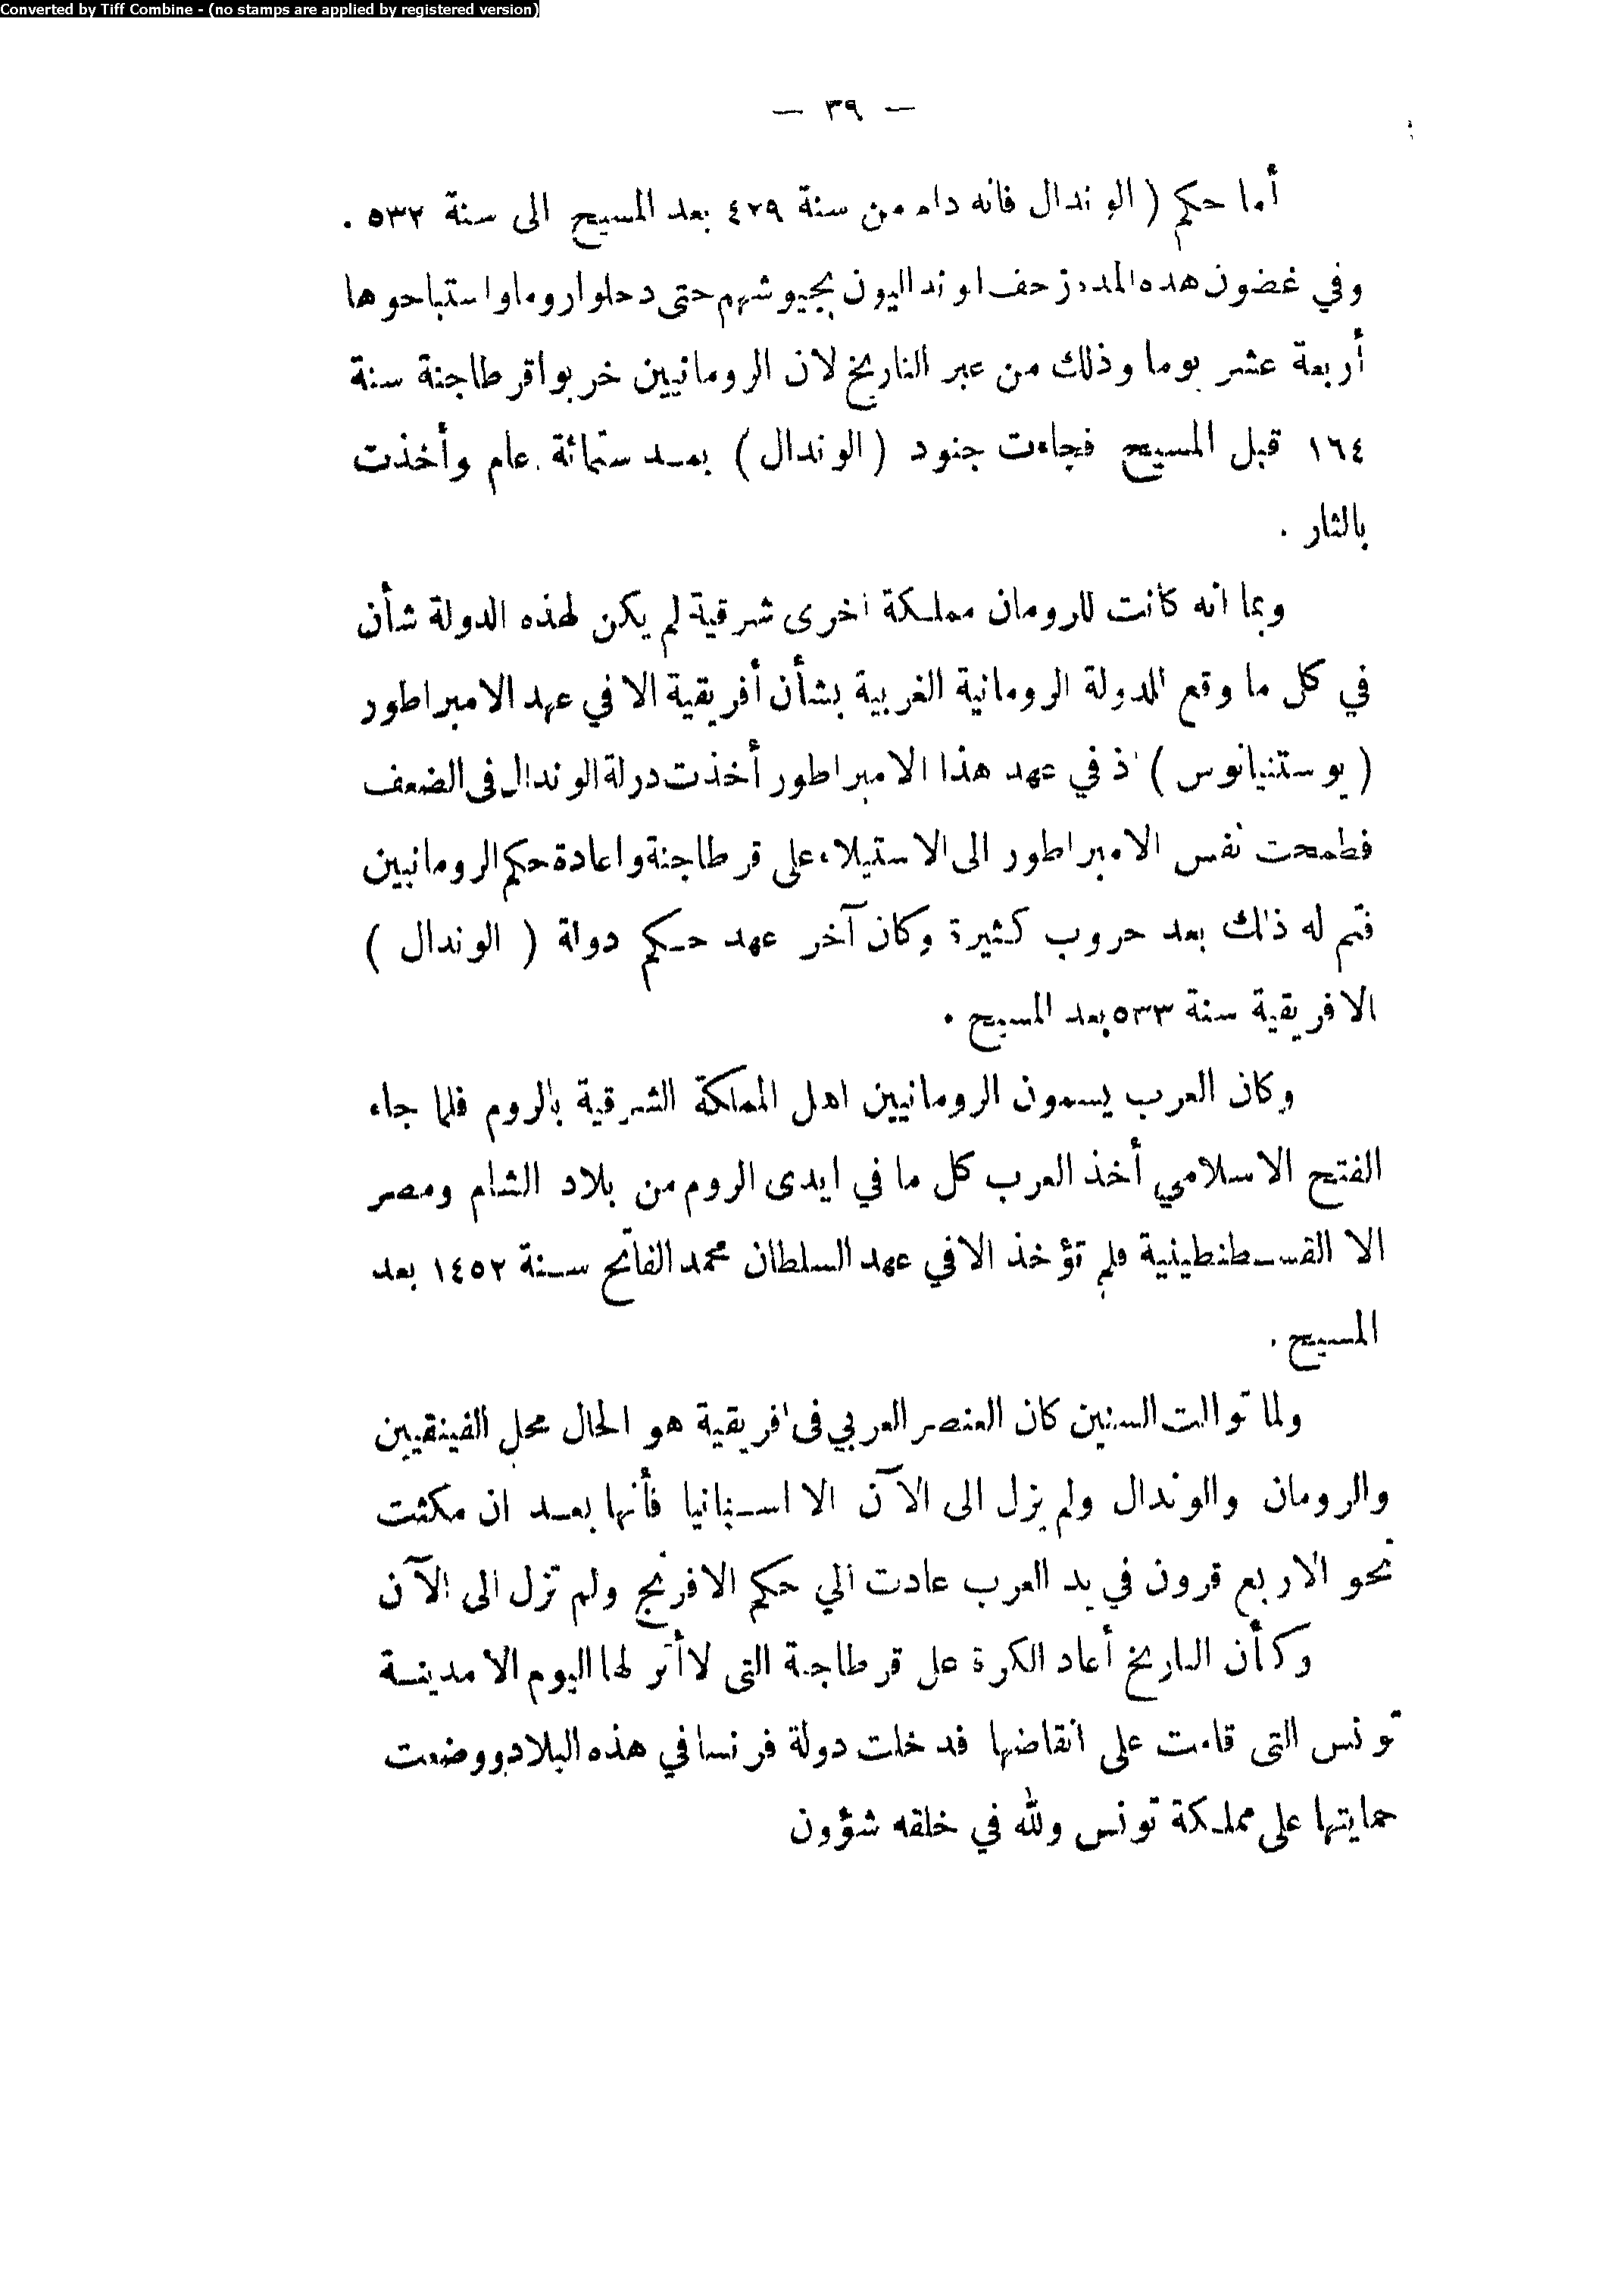 Converted by Tiff Combine - (no stamps are applied by registered version)
— ٣٩ —
أما حكم ( الوندال فانه دام من سنة ٤٢٩ بعد المسيح الى سنة ٥٣٢ .
وفي غضون هذه المدة زحف الونداليون بجيوشهم حتى دخلوا روما واستباحوها
أربعة عشر يوما وذلك من عبر التاريخ لان الرومانيين خربوا قرطاجنة سنة
١٦٤ قبل المسيح فجاءت جنود ( الوندال ) بعد ستمائة عام وأخذت
بالثار .
وبما انه كانت للرومان مملكة اخرى شرقية لم يكن لهذه الدولة شأن
في كل ما وقع للدولة الرومانية الغربية بشأن أفريقية الا في عهد الامبراطور
( يوستنيانوس ) اذ في عهد هذا الامبراطور أخذت دولة الوندال فى الضعف
فطمحت نفس الامبراطور الى الاستيلاء على قرطاجنة واعادة حكم الرومانيين
فتم له ذلك بعد حروب كثيرة وكان آخر عهد حكم دولة ( الوندال )
الافريقية سنة ٥٣٣ بعد المسيح .
وكان العرب يسمون الرومانيين اهل المملكة الشرقية بالروم فلما جاء
الفتح الاسلامي أخذ العرب كل ما في ايدى الروم من بلاد الشام ومصر
الا القسطنطينية فلم تؤخذ الا في عهد السلطان محمد الفاتح سنة ١٤٥٢ بعد
المسيح .
ولما توالت السنين كان العنصر العربي فى افريقية هو الحال محل الفينقيين
والرومان والوندال ولم يزل الى الآن الا اسبانيا فأنها بعد ان مكثت
نحو الاربع قرون في يد العرب عادت الي حكم الافرنج ولم تزل الى الآن
وكأن التاريخ أعاد الكرة على قرطاجنة التى لا أثر لها اليوم الا مدينة
تونس التى قامت على انقاضها فدخلت دولة فرنسا في هذه البلاد ووضعت
حمايتها على مملكة تونس ولله في خلقه شؤون